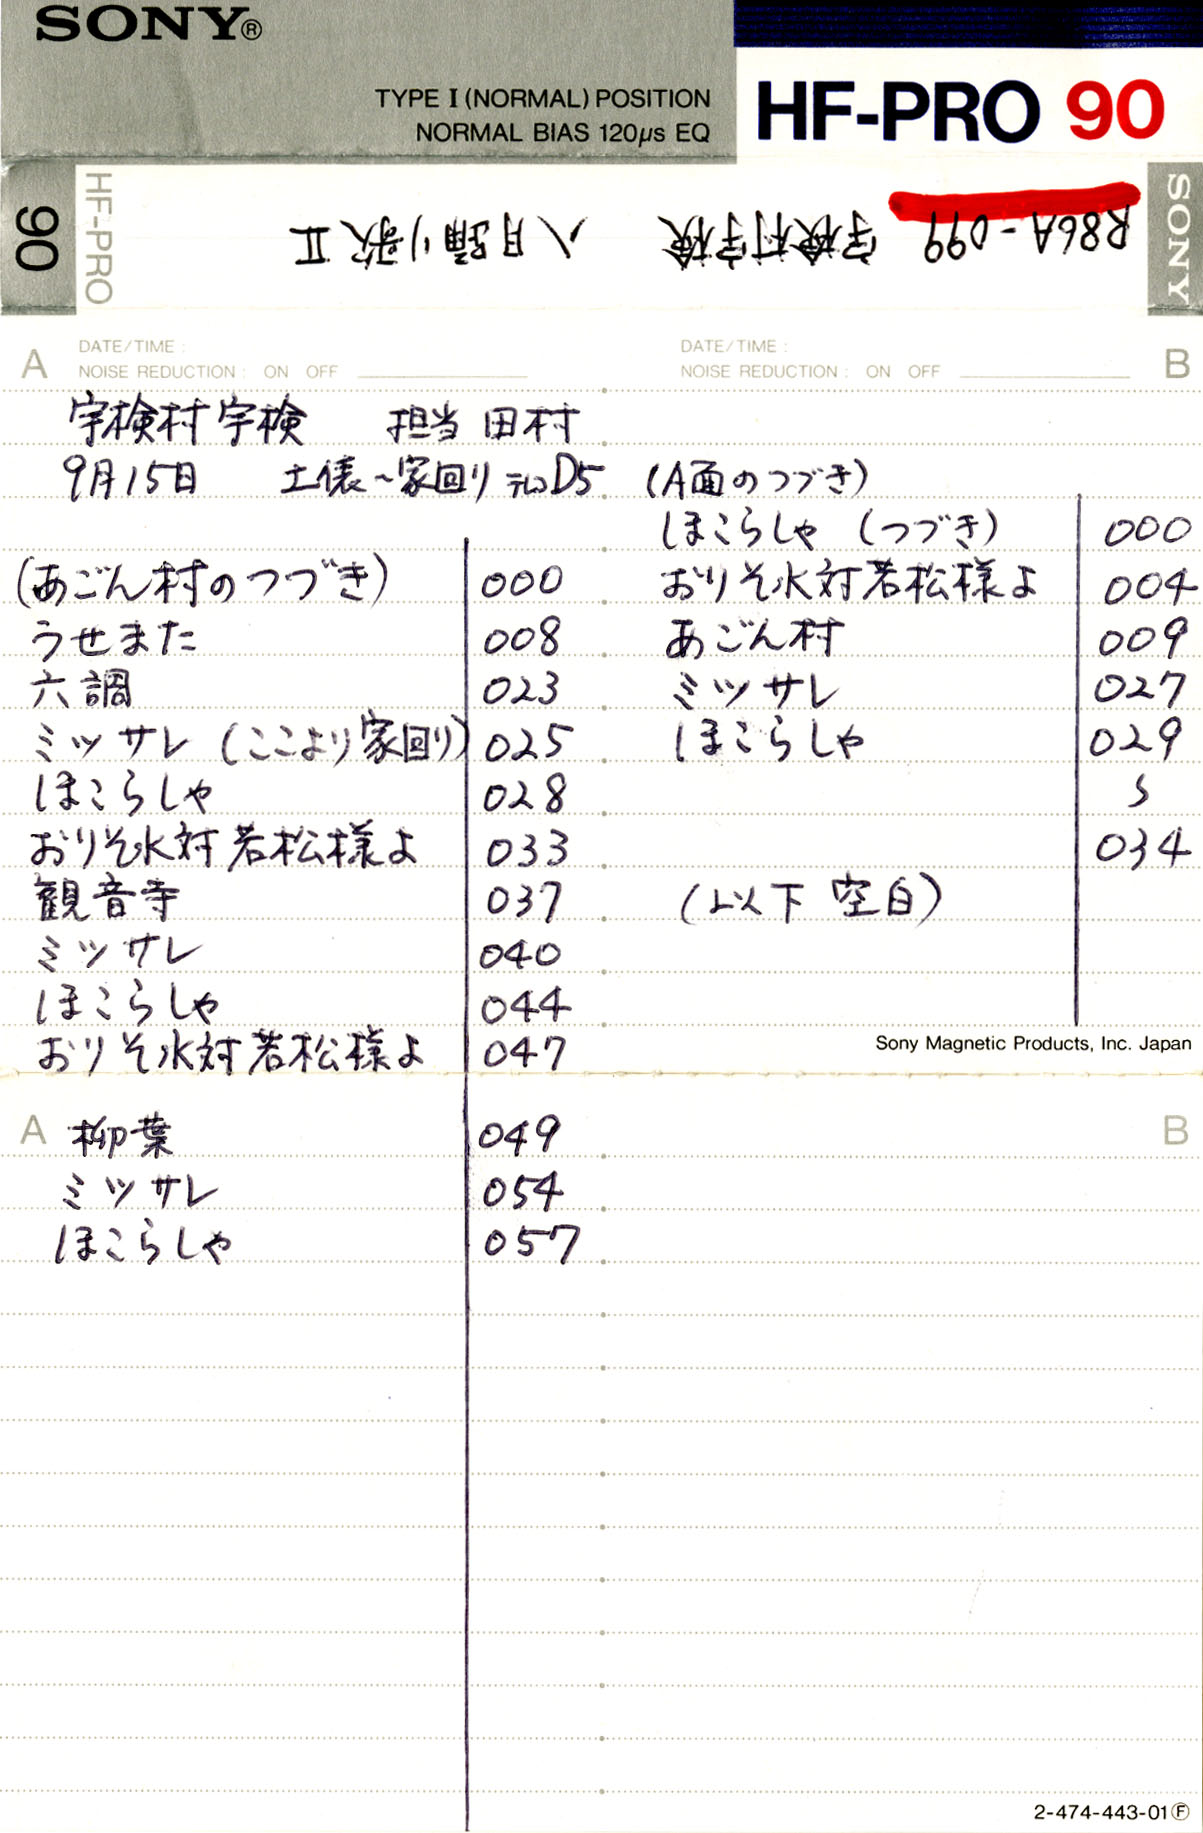 SONY®
TYPE I (NORMAL) POSITION
NORMAL BIAS 120μs EQ
HF-PRO 90
90
HF-PRO
R86A-099 宇検村宇検 八月踊り歌 II
SONY
A DATE/TIME :
NOISE REDUCTION : ON OFF
DATE/TIME :
NOISE REDUCTION : ON OFF
B
宇検村宇検 担当 田村
9月15日 土俵~家回り テレコD5
(あごん村のつづき) 000
うせまた 008
六調 023
ミツサレ (ここより家回り) 025
ほこらしゃ 028
おりそ水対若松様よ 033
観音寺 037
ミツサレ 040
ほこらしゃ 044
おりそ水対若松様よ 047
A 柳葉 049
ミツサレ 054
ほこらしゃ 057
(A面のつづき)
ほこらしゃ (つづき) 000
おりそ水対若松様よ 004
あごん村 009
ミツサレ 027
ほこらしゃ 029
〜
034
(以下 空白)
Sony Magnetic Products, Inc. Japan
B
2-474-443-01Ⓕ